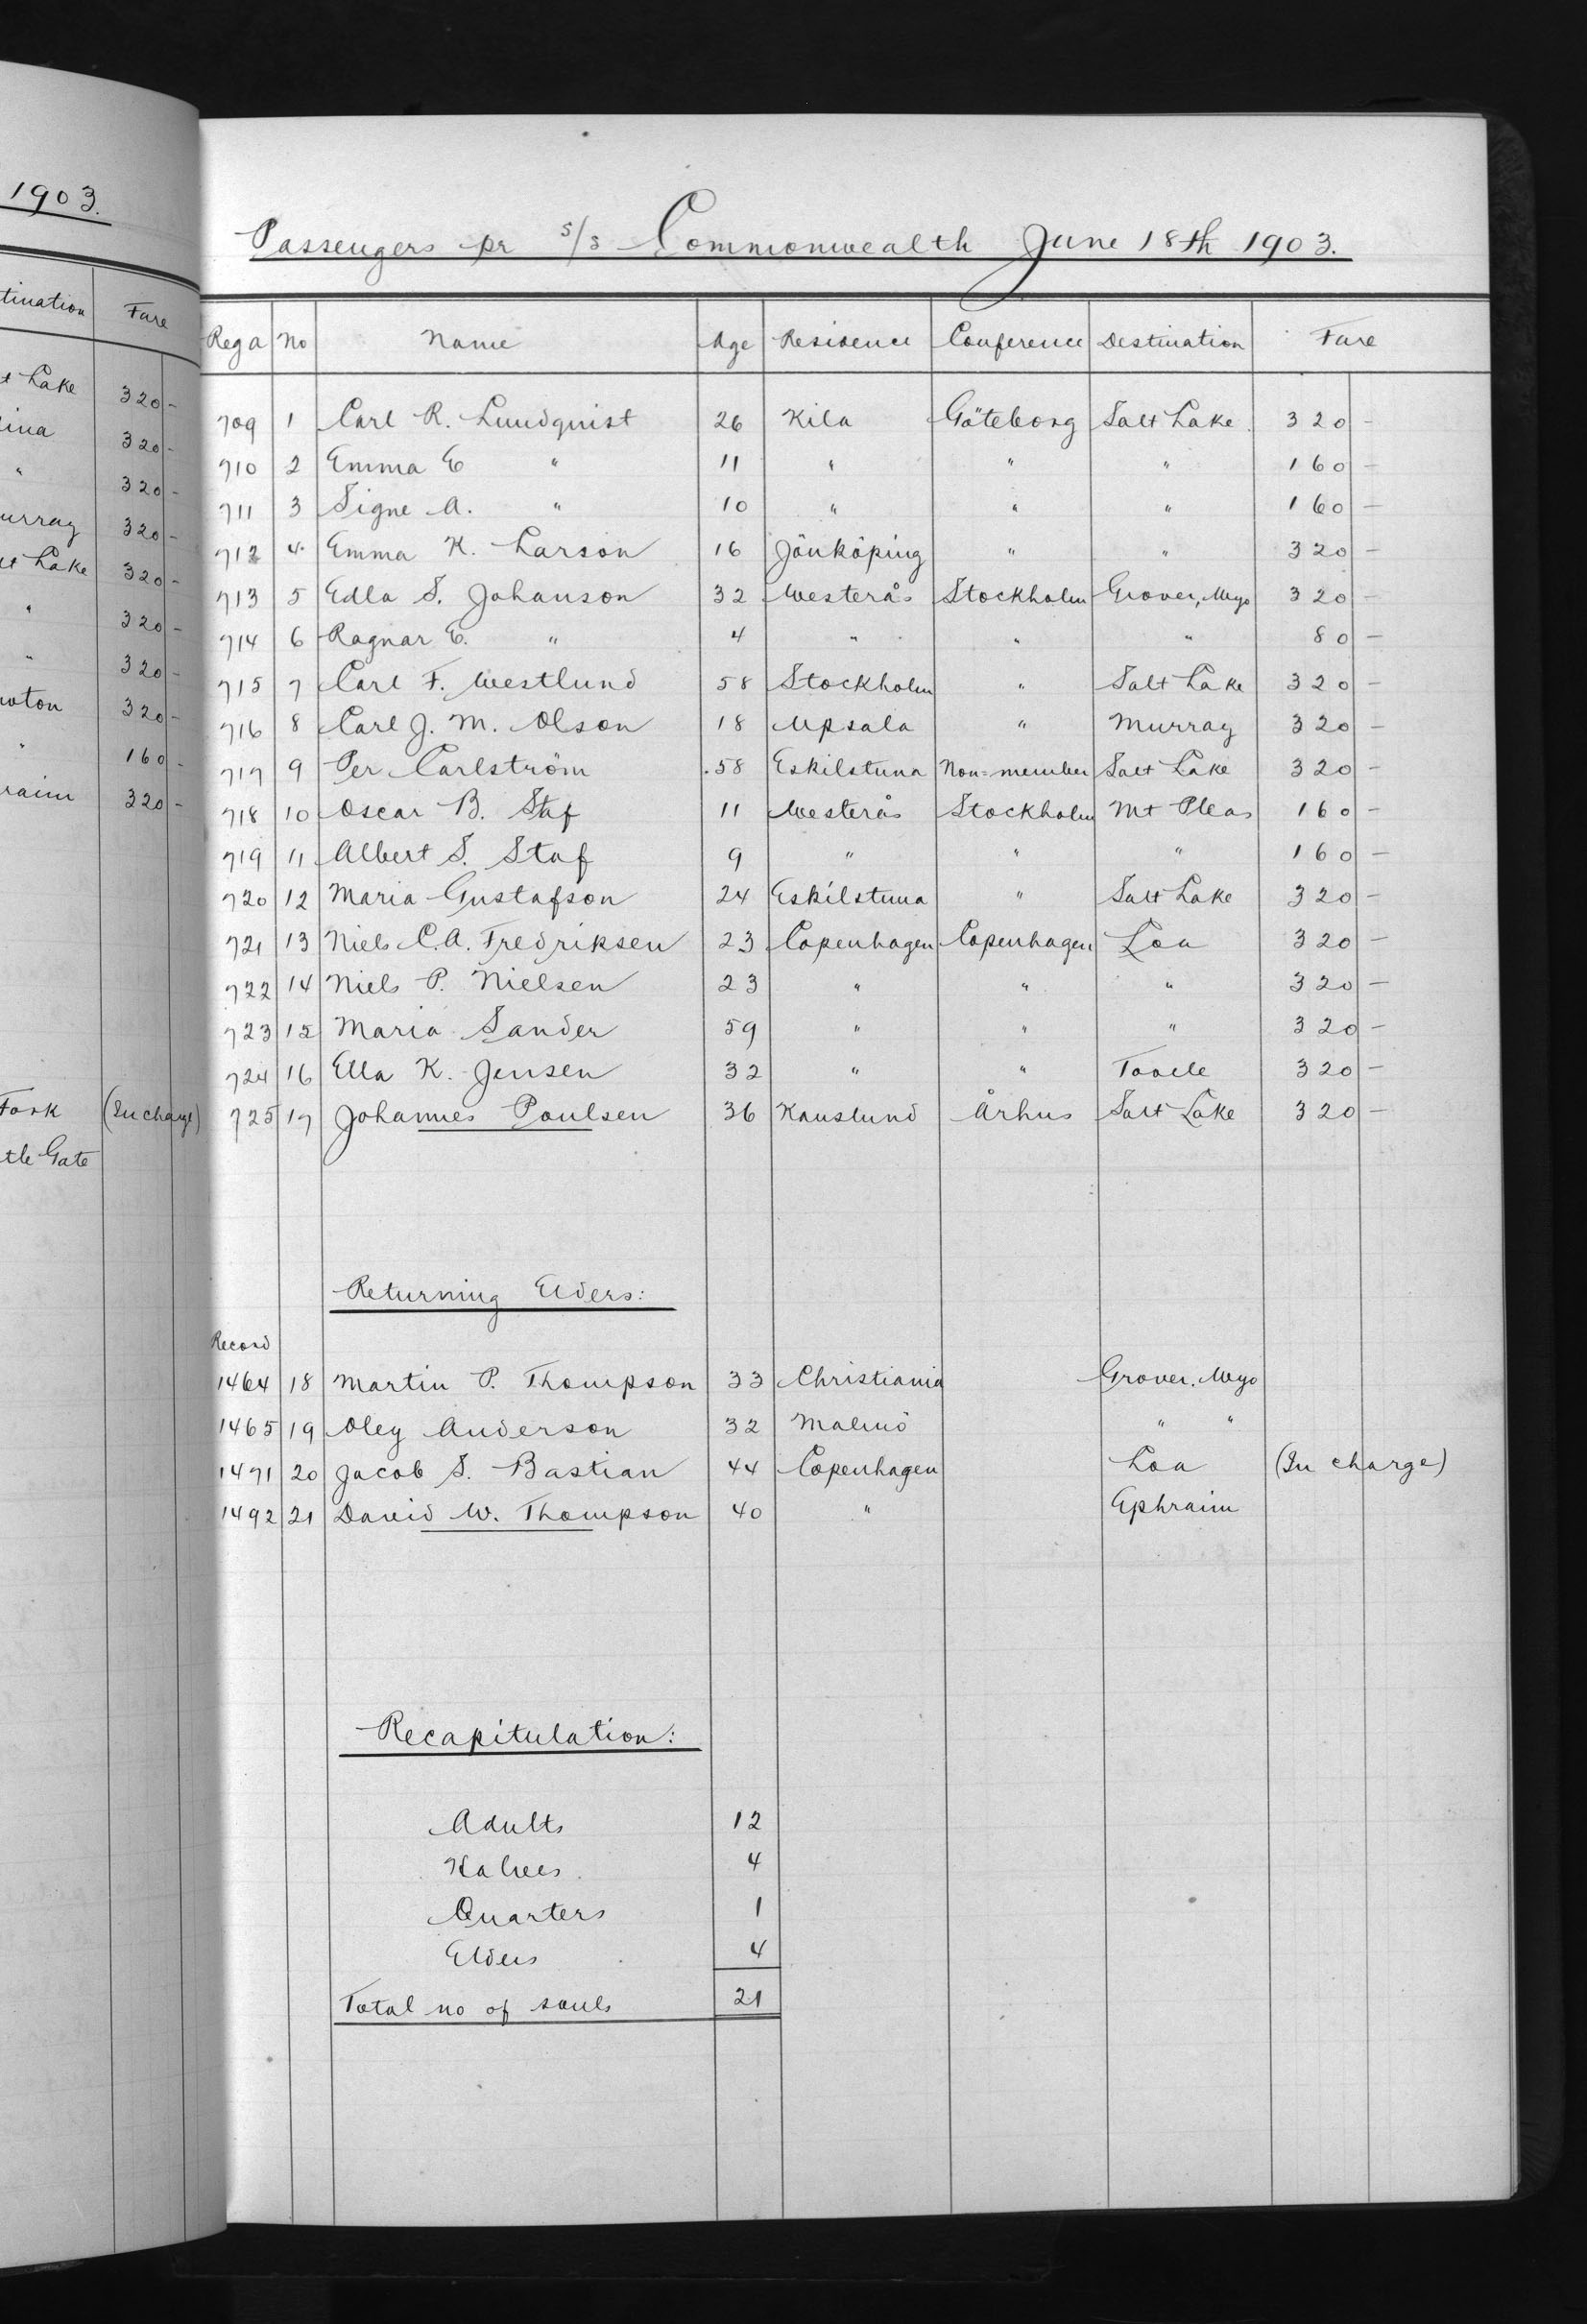 1903.
tination Fare
t Lake 320 -
ina 320 -
" 320 -
urray 320 -
t Lake 320 -
" 320 -
" 320 -
320 -
" 160 -
raim 320 -
Fork (In charge)
tle Gate
Passengers pr s/s Commonwealth June 18th 1903.
Rega No Name Age Residence Conference Destination Fare
709 1 Carl R. Lundquist 26 Kila Göteborg Salt Lake. 320 -
710 2 Emma E " 11 " " " 160 -
711 3 Signe A. " 10 " " " 160 -
712 4. Emma K. Larson 16 Jönköping " " 320 -
713 5 Edla S. Johanson 32 Westerås Stockholm Grover, Wyo 320 -
714 6 Ragnar E. " 4 " " " 80 -
715 7 Carl F. Westlund 58 Stockholm " Salt Lake 320 -
716 8 Carl J. M. Olson 18 Upsala " Murray 320 -
717 9 Per Carlström 58 Eskilstuna Non=member Salt Lake 320 -
718 10 Oscar B. Staf 11 Westerås Stockholm Mt Pleas 160 -
719 11 Albert S. Staf 9 " " " 160 -
720 12 Maria Gustafson 24 Eskilstuna " Salt Lake 320 -
721 13 Niels C.A. Fredriksen 23 Copenhagen Copenhagen Loa 320 -
722 14 Niels P. Nielsen 23 " " " 320 -
723 15 Maria Sander 59 " " " 320 -
724 16 Ella K. Jensen 32 " " Tooele 320 -
725 17 Johannes Poulsen 36 Kauslund Århus Salt Lake 320 -
Returning Elders:
Record
1464 18 Martin P. Thompson 33 Christiania Grover. Wyo
1465 19 Oley Anderson 32 Malmö " "
1471 20 Jacob S. Bastian 44 Copenhagen Loa (In charge)
1492 21 David W. Thompson 40 " Ephraim
Recapitulation:
Adults 12
Halves 4
Quarters 1
Elders 4
Total no of souls 21